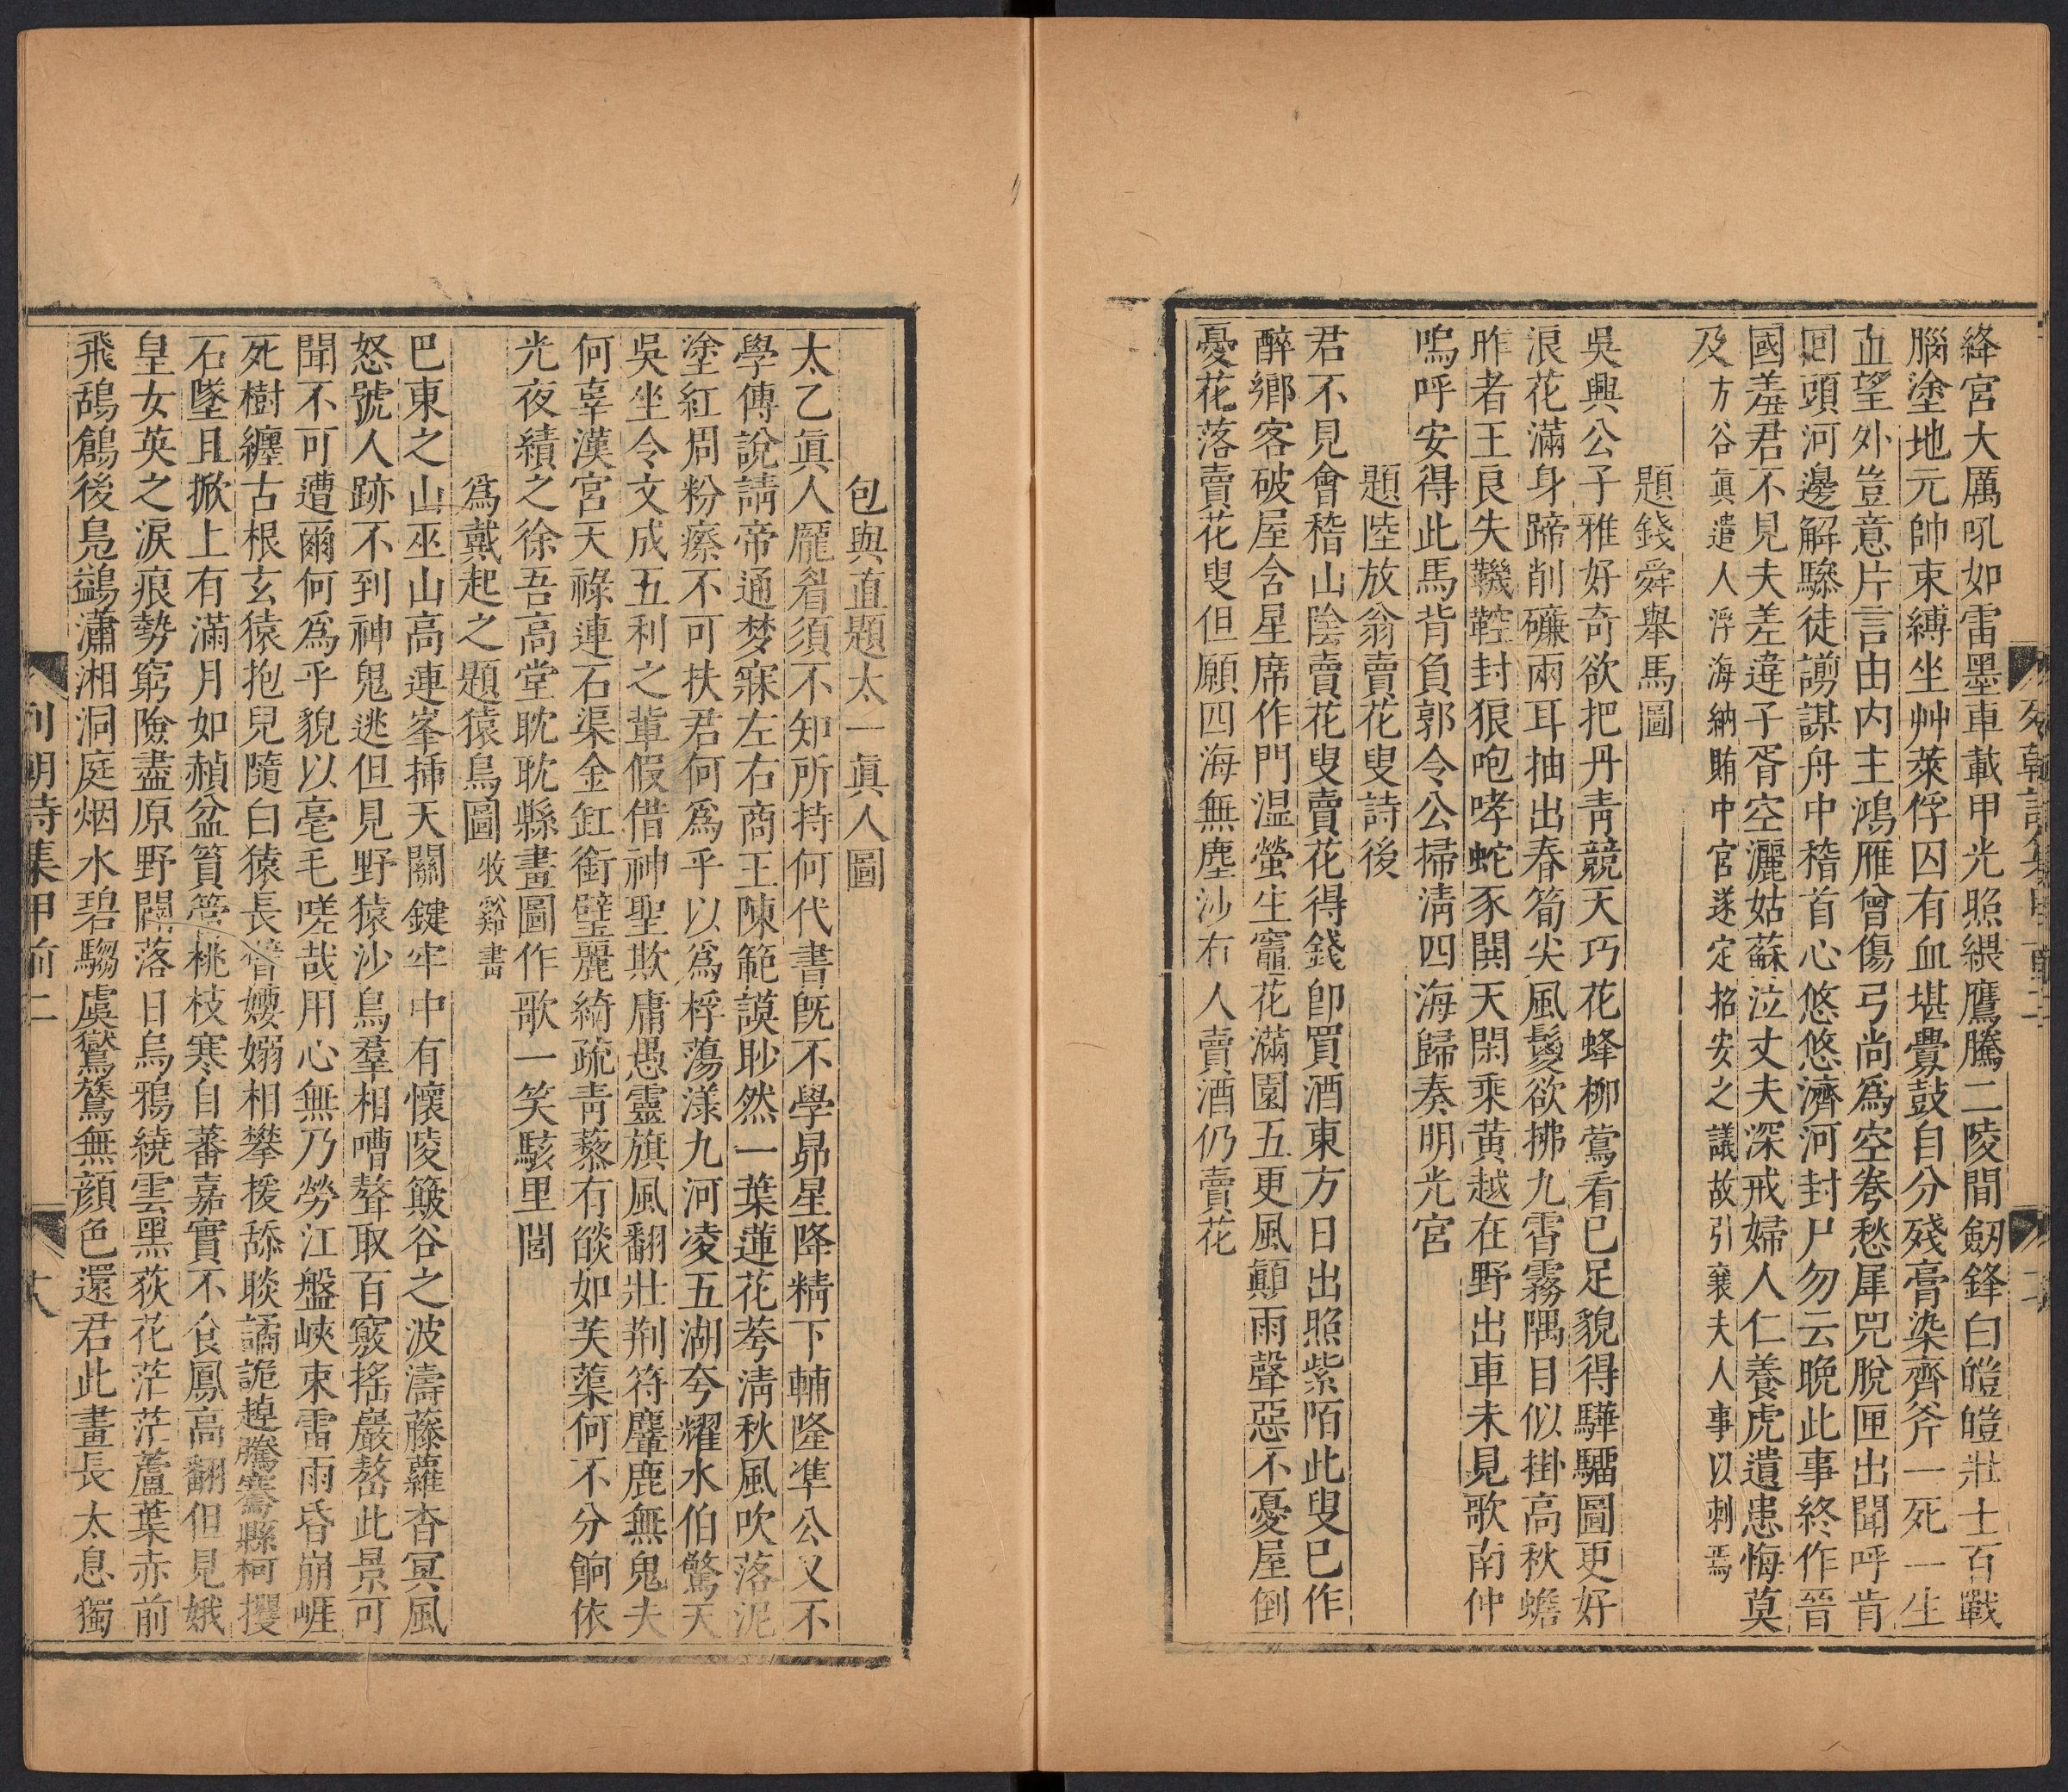 絳宮大厲吼如雷墨車載甲光照緹鷹騰二陵間劒鋒白皚皚壯士百戰
腦塗地元帥束縛坐艸萊俘囚有血堪釁鼓自分殘膏染齊斧一死一生
血望外豈意片言由内主鴻雁曾傷弓尚爲空弮愁犀兕脫匣出聞呼肯
回頭河邊解驂徒謭謀舟中稽首心悠悠濟河封尸勿云晚此事終作晉
國羞君不見夫差違子胥空灑姑蘇泣丈夫深戒婦人仁養虎遺患悔莫
及方谷眞遣人浮海納賄中宮遂定招安之議故引襄夫人事以刺焉
題錢舜舉馬圖
吳興公子雅好奇欲把丹靑競天巧花蜂柳鶯看已足貌得驊騮圖更好
浪花滿身蹄削礪兩耳抽出春筍尖風鬉欲拂九霄霧隅目似掛高秋蟾
昨者王良失鞿鞚封狼咆哮蛇豕鬨天閑乘黄越在野出車未見歌南仲
嗚呼安得此馬背負郭令公掃淸四海歸奏明光宮
題陸放翁賣花叟詩後
君不見會稽山陰賣花叟賣花得錢卽買酒東方日出照紫陌此叟已作
醉鄉客破屋含星席作門温螢生竈花滿園五更風顛雨聲惡不憂屋倒
憂花落賣花叟但願四海無塵沙有人賣酒仍賣花
列朝詩集甲前二
包與直題太一眞人圖
太乙眞人龎眉須不知所持何代書旣不學昴星降精下輔隆準公又不
學傳說請帝通梦寐左右商王陳範謨眇然一葉蓮花荂淸秋風吹落泥
塗紅周粉瘵不可扶君何爲乎以爲桴蕩漾九河凌五湖夸耀水伯驚天
吳坐令文成五利之輩假借神聖欺庸愚靈旗風翻壯荆符麞鹿無鬼夫
何辜漢宮天祿連石渠金缸銜璧麗綺疏靑藜有燄如芙蕖何不分餉依
光夜績之徐吾高堂耽耽縣畫圖作歌一笑駭里閭
爲戴起之題猿鳥圖牧谿畫
巴東之山巫山高連峯揷天關鍵牢中有懷陵簸谷之波濤藤蘿杳冥風
怒號人跡不到神鬼逃但見野猿沙鳥羣相嘈聱取百竅搖巖嶅此景可
聞不可遭爾何爲乎貌以毫毛嗟哉用心無乃勞江盤峽束雷雨昏崩崕
死樹纏古根玄猿抱兒隨白猿長臂㜢嫋相攀援舔睒譎詭趠騰騫縣柯攫
石墜且掀上有滿月如赬盆篔簹桃枝寒自蕃嘉實不食鳳高翻但見娥
皇女英之淚痕勢窮險盡原野闊落日烏鴉繞雲黑荻花茫茫蘆葉赤前
飛鴰鶬後鳧鷁瀟湘洞庭烟水碧騶虞鸑鷟無顔色還君此畫長太息獨
列朝詩集甲前二